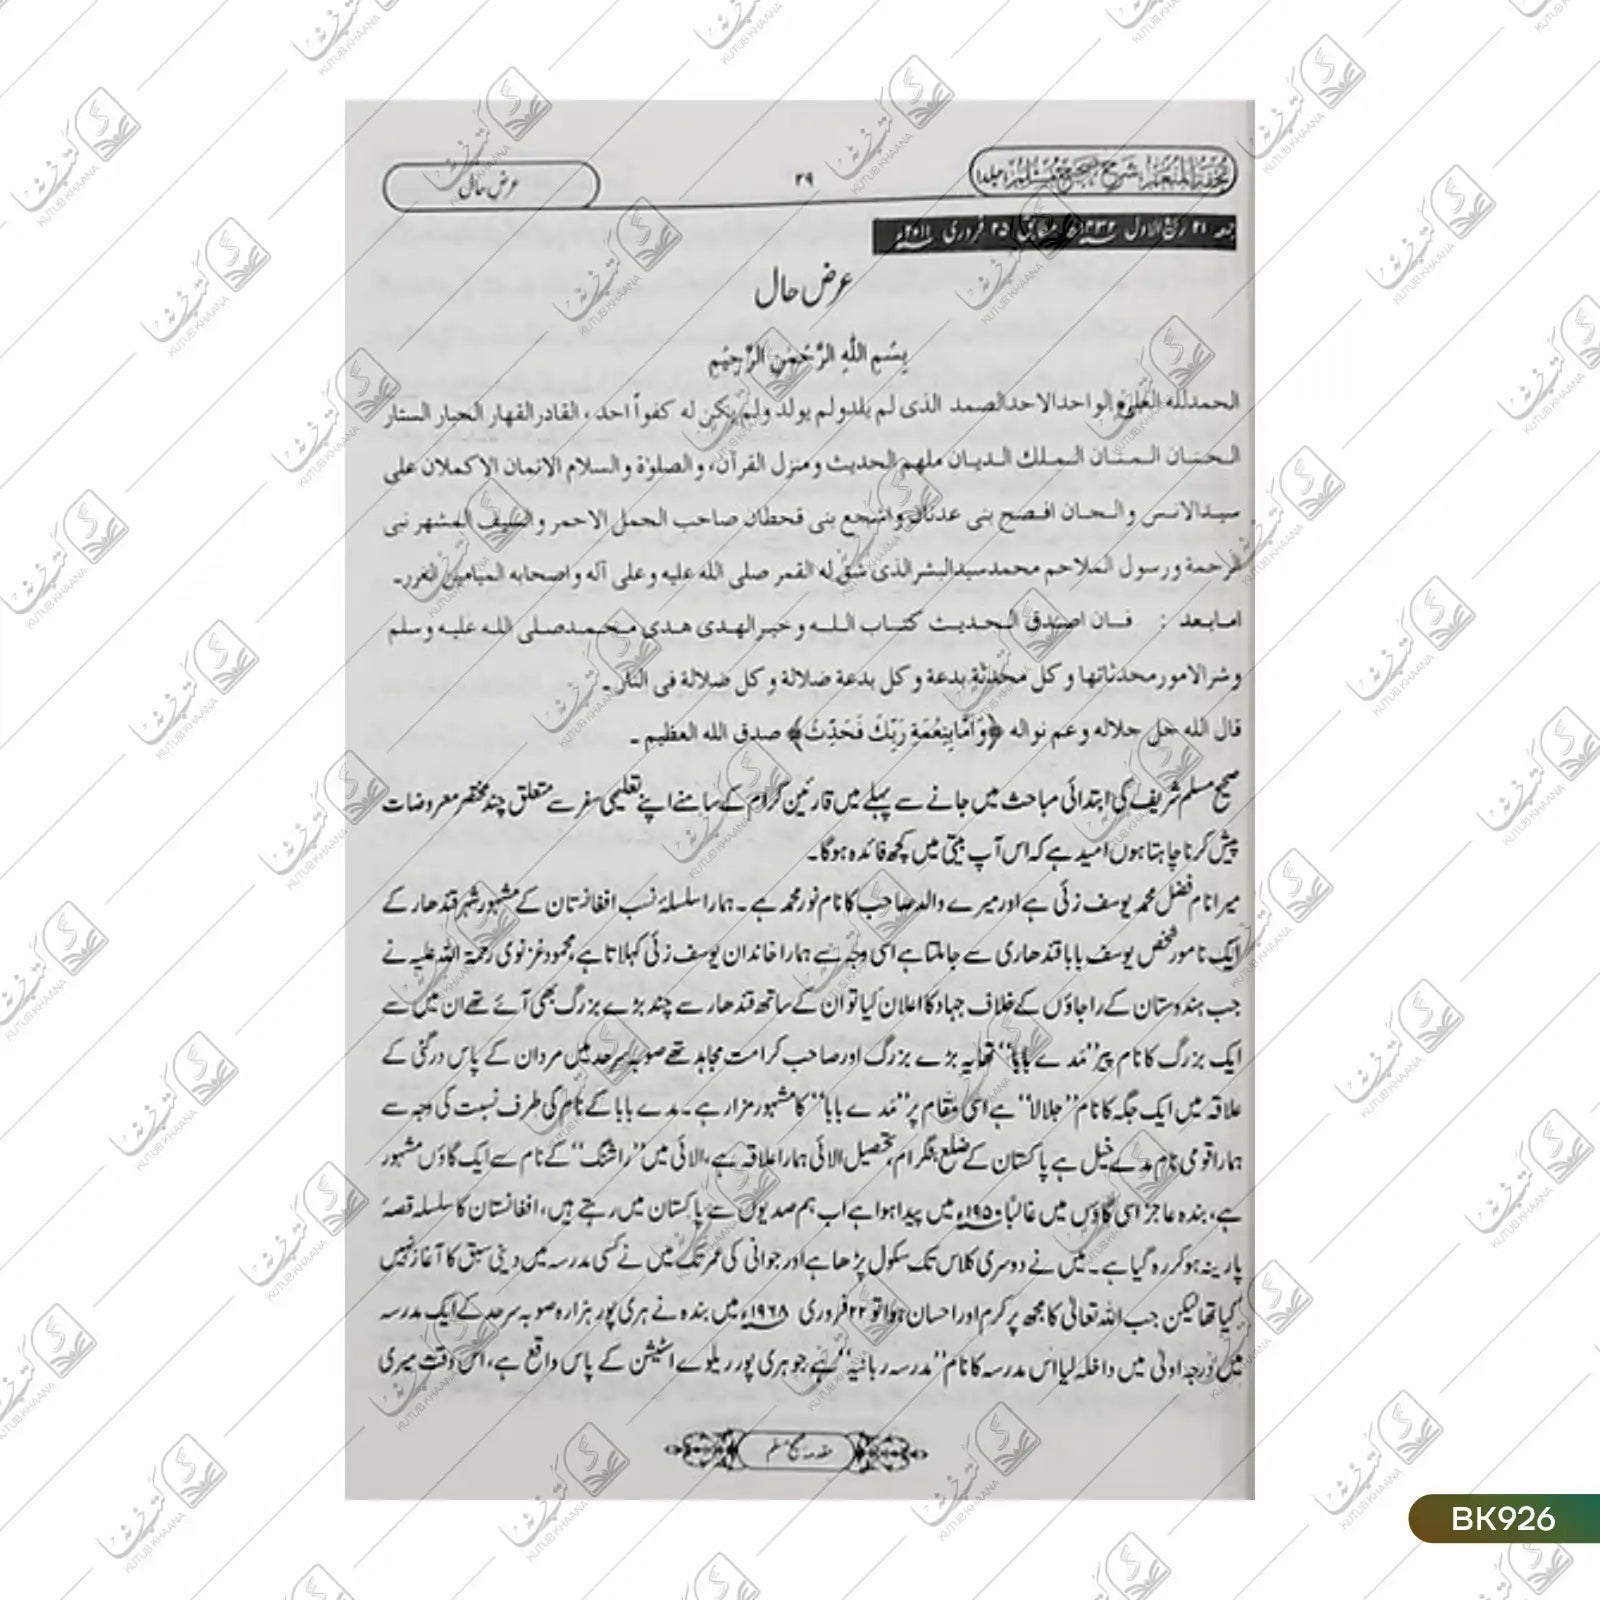 تحفۃ المنعم شرح صحیح مسلم جلد ۱
۲۹
عرض حال
جمعہ ۲۱ ربیع الاول ۱۴۳۲ھ مطابق ۲۵ فروری ۲۰۱۱ء
عرض حال
بِسْمِ اللهِ الرَّحْمٰنِ الرَّحِيْمِ
الحمدلله العلی الواحد الاحد الصمد الذی لم یلد ولم یولد ولم یکن له کفواً احد، القادر القهار الجبار الستار
الحنان المنان الملك الديان ملهم الحديث ومنزل القرآن، والصلوٰة والسلام الاتمان الاكملان على
سيد الانس والجان افصح بنى عدنان واشجع بنى قحطان صاحب الجمل الاحمر والسيف المشهر نبى
الرحمة ورسول الملاحم محمد سيد البشر الذى شق له القمر صلى الله عليه وعلى آله واصحابه الميامين الغرر۔
امابعد : فان اصدق الحديث كتاب الله وخير الهدى هدى محمد صلى الله عليه وسلم
وشر الامور محدثاتها وكل محدثة بدعة وكل بدعة ضلالة وكل ضلالة فى النار۔
قال الله جل جلاله وعم نواله ﴿وَاَمَّا بِنِعْمَةِ رَبِّكَ فَحَدِّثْ﴾ صدق الله العظيم۔
صحیح مسلم شریف کی ابتدائی مباحث میں جانے سے پہلے میں قارئین کرام کے سامنے اپنے تعلیمی سفر سے متعلق چند مختصر معروضات
پیش کرنا چاہتا ہوں امید ہے کہ اس آپ بیتی میں کچھ فائدہ ہوگا۔
میرا نام فضل محمد یوسف زئی ہے اور میرے والد صاحب کا نام نور محمد ہے۔ ہمارا سلسلۂ نسب افغانستان کے مشہور شہر قندھار کے
ایک نامور شخص یوسف بابا قندھاری سے جا ملتا ہے اسی وجہ سے ہمارا خاندان یوسف زئی کہلاتا ہے، محمود غزنوی رحمۃ اللہ علیہ نے
جب ہندوستان کے راجاؤں کے خلاف جہاد کا اعلان کیا تو ان کے ساتھ قندھار سے چند بڑے بزرگ بھی آئے تھے ان میں سے
ایک بزرگ کا نام پیر ”مَدے بابا“ تھا یہ بڑے بزرگ اور صاحب کرامت مجاہد تھے صوبہ سرحد میں مردان کے پاس درگئی کے
علاقہ میں ایک جگہ کا نام ”جلالا“ ہے اسی مقام پر ”مَدے بابا“ کا مشہور مزار ہے۔ مدے بابا کے نام کی طرف نسبت کی وجہ سے
ہمارا قومی نام مدے خیل ہے پاکستان کے ضلع بٹگرام، تحصیل الائی ہمارا علاقہ ہے، الائی میں ”راشنگ“ کے نام سے ایک گاؤں مشہور
ہے، بندہ عاجز اسی گاؤں میں غالباً ۱۹۵۰ء میں پیدا ہوا ہے اب ہم صدیوں سے پاکستان میں رہتے ہیں، افغانستان کا سلسلہ قصۂ
پارینہ ہو کر رہ گیا ہے۔ میں نے دوسری کلاس تک سکول پڑھا ہے اور جوانی کی عمر تک میں نے کسی مدرسہ میں دینی سبق کا آغاز نہیں
کیا تھا لیکن جب اللہ تعالیٰ کا مجھ پر کرم اور احسان ہوا تو ۲۲ فروری ۱۹۶۸ء میں بندہ نے ہری پور ہزارہ صوبہ سرحد کے ایک مدرسہ
میں درجہ اولیٰ میں داخلہ لیا اس مدرسہ کا نام ”مدرسہ ربانیہ“ ہے جو ہری پور ریلوے اسٹیشن کے پاس واقع ہے، اس وقت میری
مقدمہ صحیح مسلم
BK926
کتب خانہ
KUTUB KHAANA